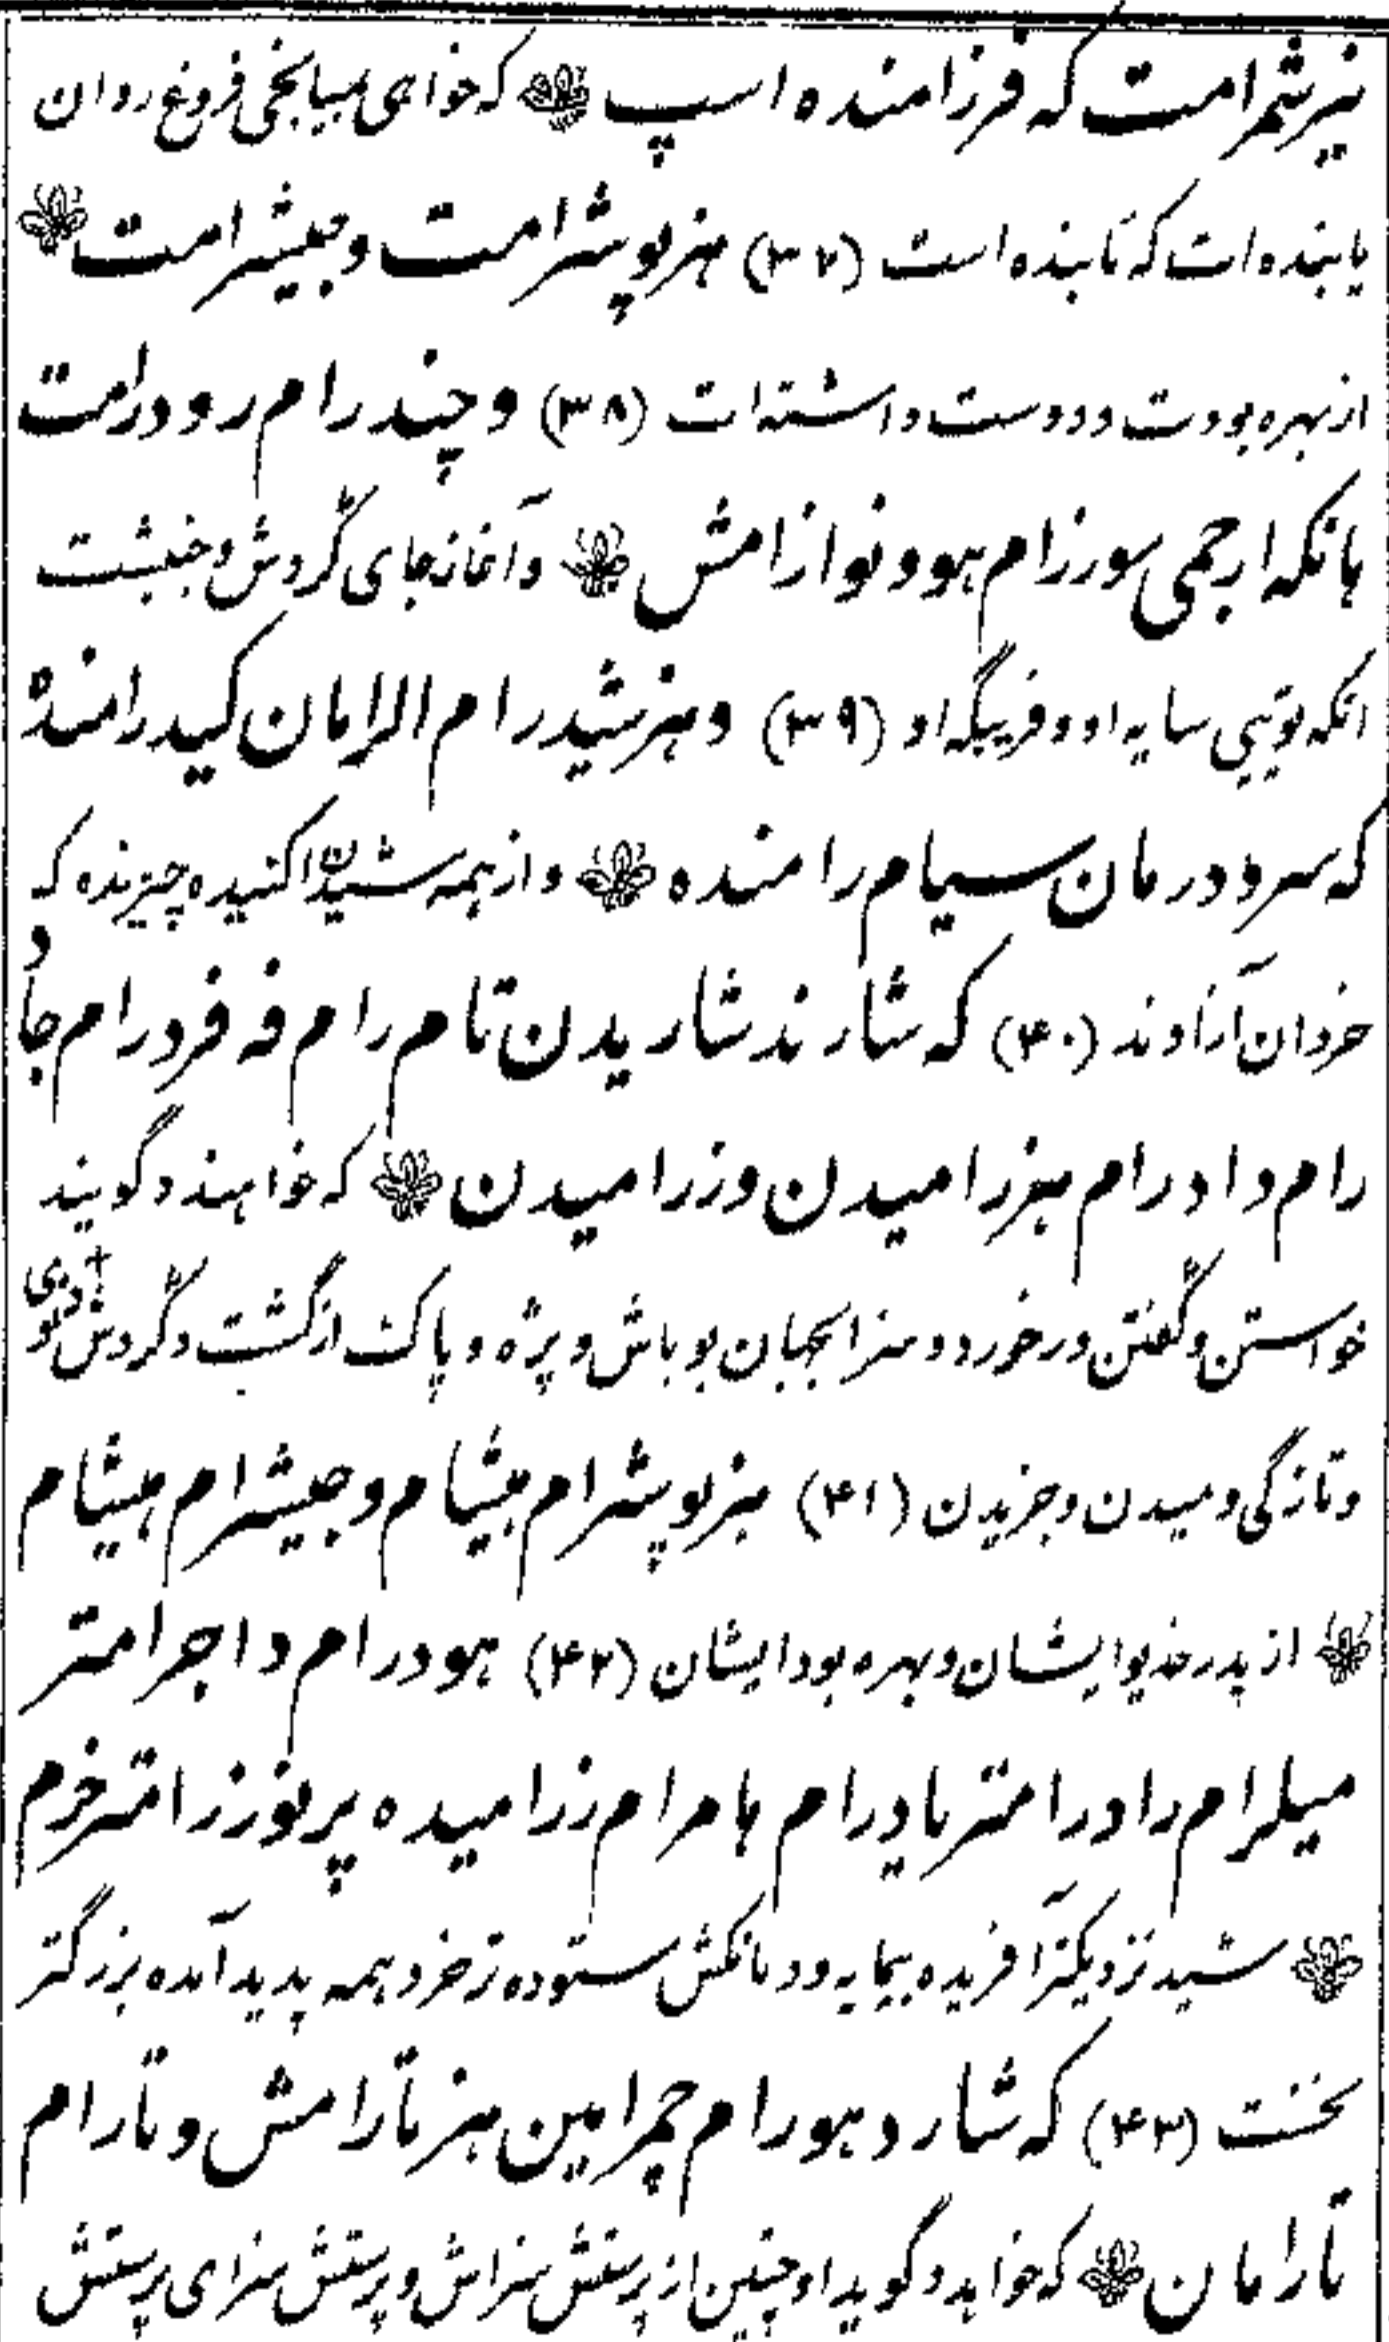 نیرشمرامت که فرزامنده اسپ ❀ که خواهی بمیانجی فروغ روان
یابنده‌ات که تابنده است (۳۷) هنر پوشرامت و جیشرامت ❀
از بهره بودت و دوست داشته‌ات (۳۸) و چندرام رودرامت
هانکه ارجمی سورزام هوو نوازامش ❀ و آغاز جای گردش و جنبشت
انکه تویی سایه او و فریبگه او (۳۹) و هنر شیدرام الرامان کیدرامنده
که سرودرمان سیام رامنده ❀ و از همه شیدان اکنیده چیزنده که
خردان آزاوند (۴۰) که شارند شاریدن تام رام فه فرودرام جاو
رام دادرام هنرزامیدن وزرامیدن ❀ که خواهند و گویند
خواستن و گفتن درخورد و سزا بجهان بو باش ویژه و پاک از گشت و گردش و نوی
و تازگی و میدن و جزیدن (۴۱) هنر پوشرام هیشام و جیشرام هیشام
❀ از پدر خدیو ایشان و بهره بود ایشان (۴۲) هودرام داجرامتر
میلرام رادرامتر یادرام هامرام زرامیده پرنورزامتر خرم
❀ شید نزدیکتر آفریده بیمایه و دمانکش ستوده‌تر خرد همه پدید آمده بزرگتر
نخست (۴۳) که شارد هورام چمرامین هنر تارامش و تارام
تارامان ❀ که خواهد و گوید او چنین از پرستش سزاش و پرستش سزای پرستش